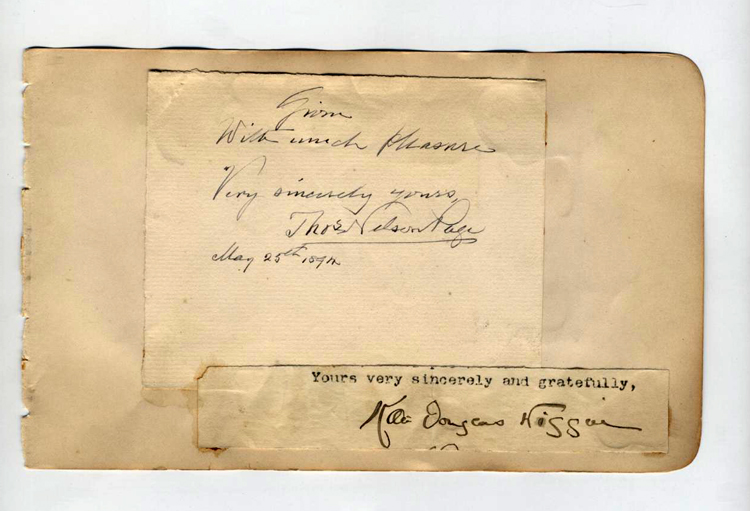 Given
With much pleasure
Very sincerely yours,
Thos Nelson Page
May 25th 1892
Yours very sincerely and gratefully,
Kate Douglas Wiggin